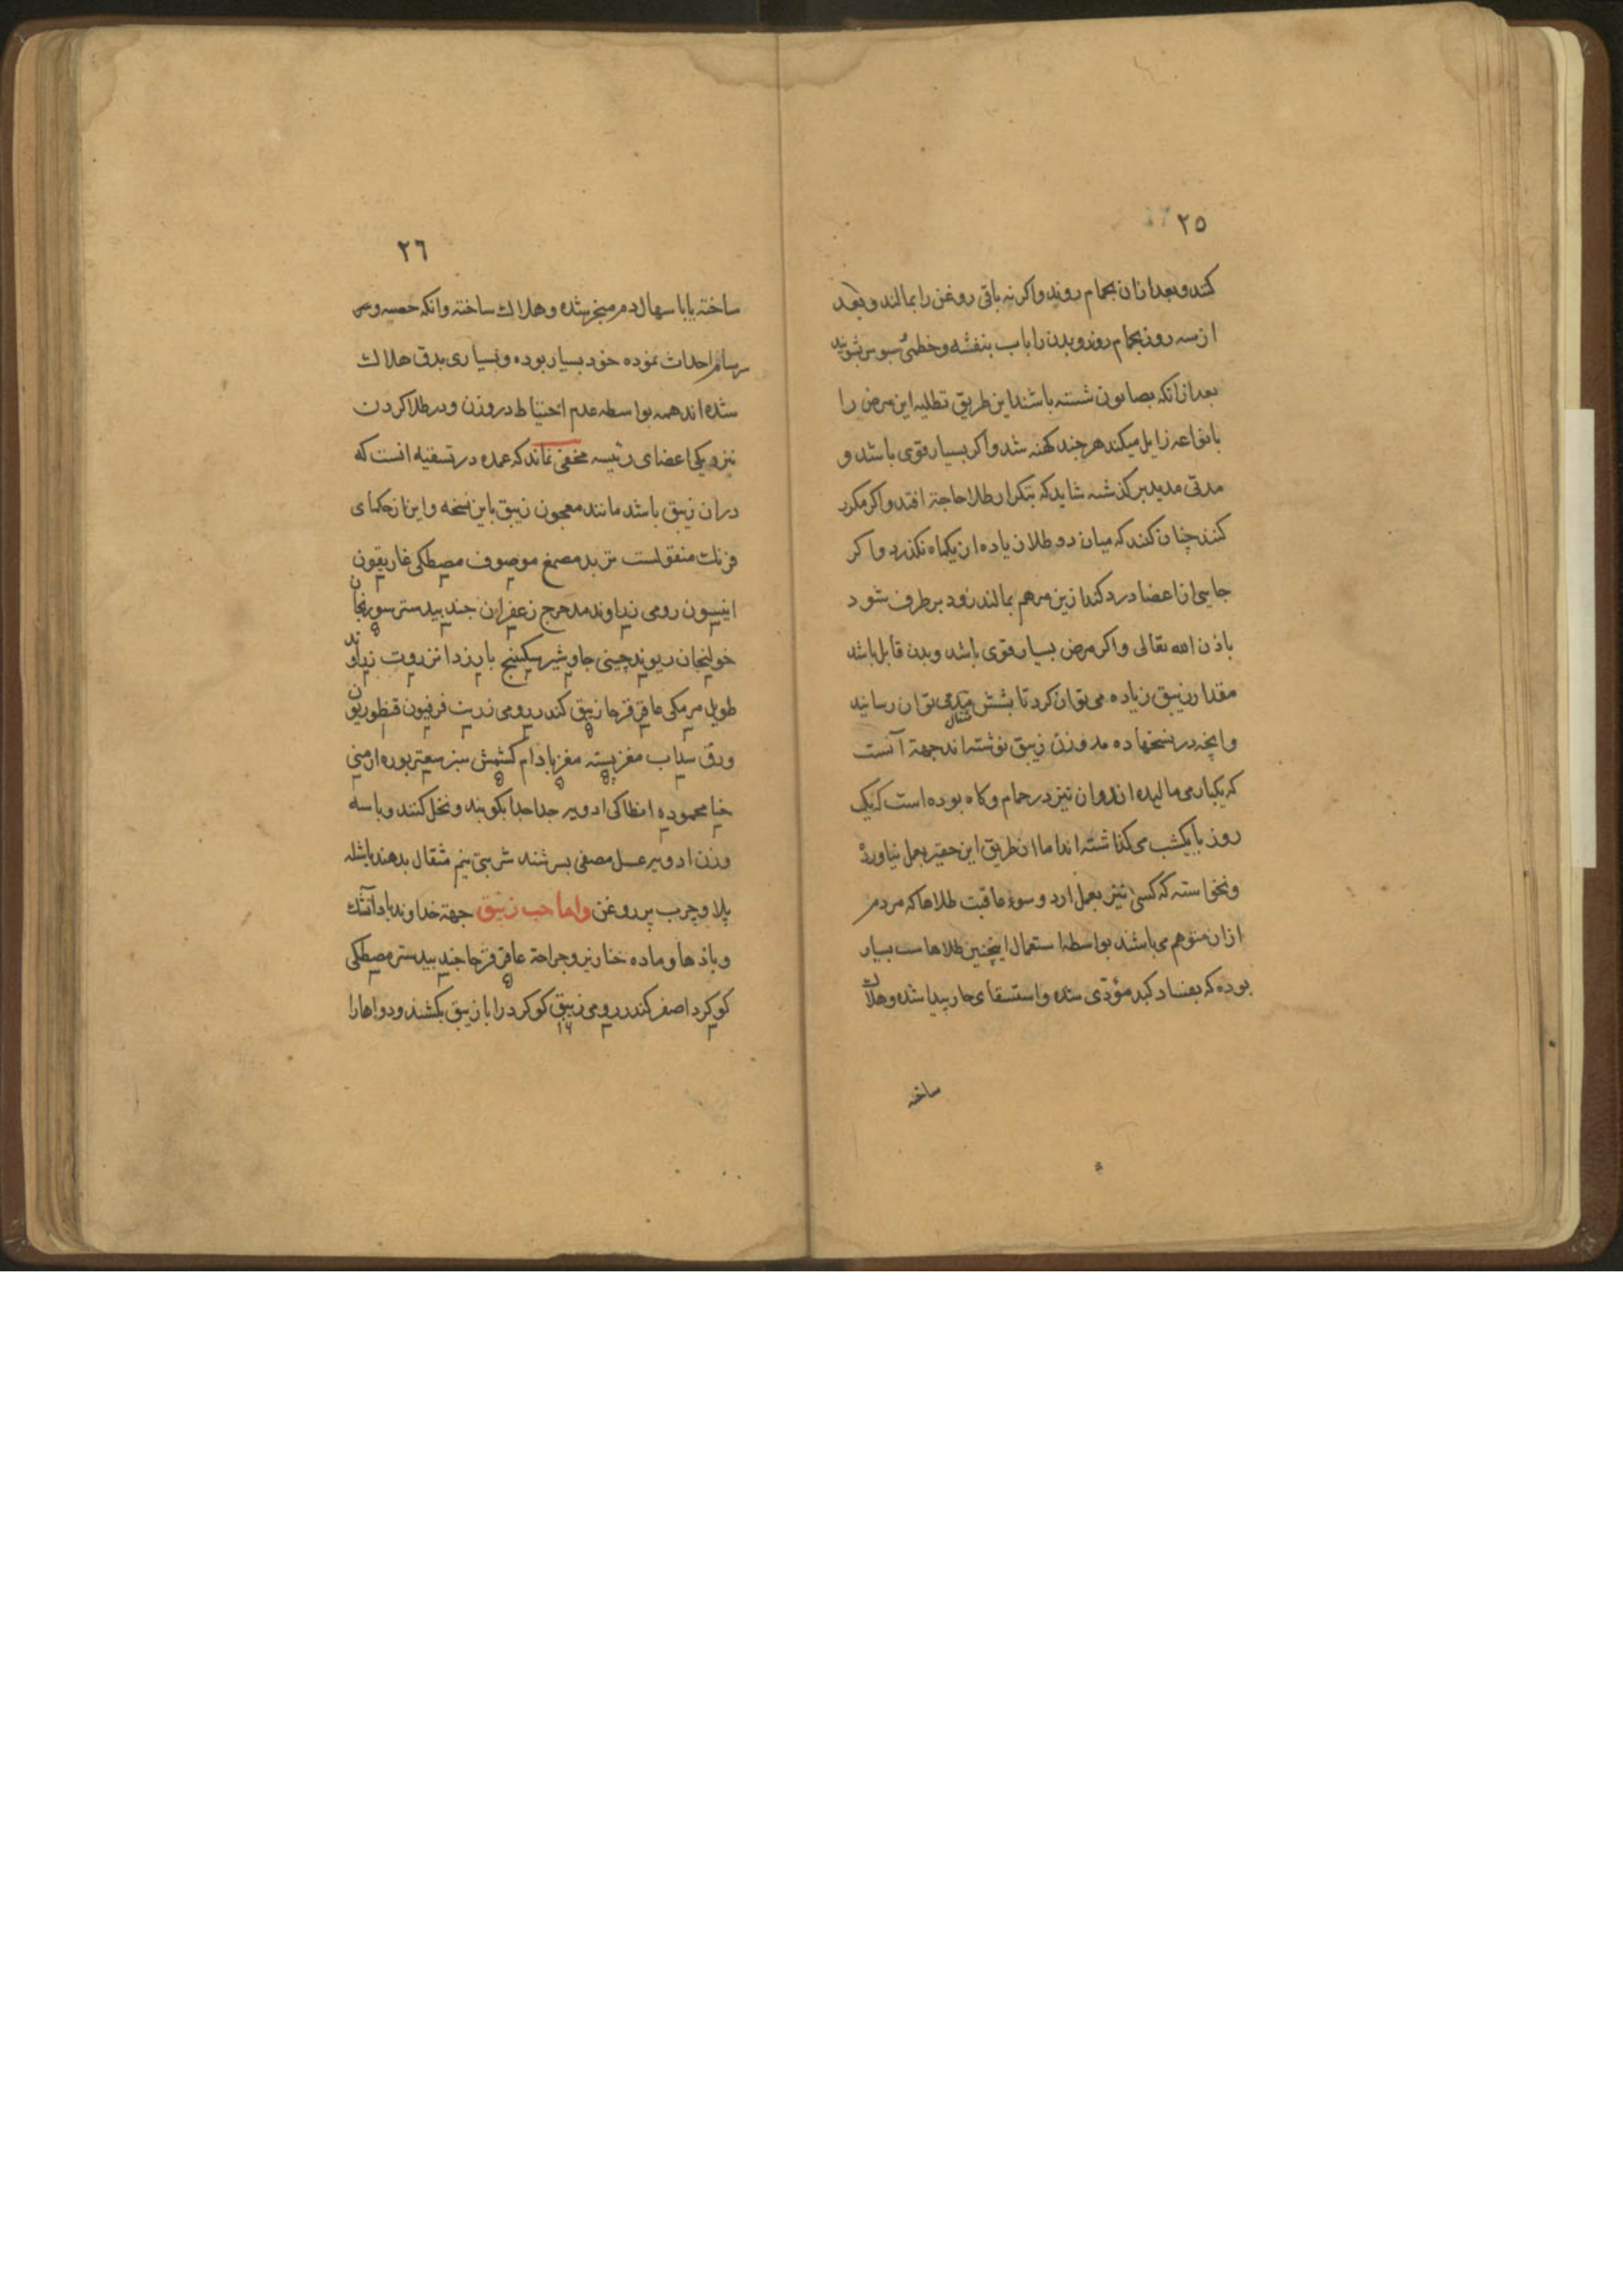 ٢٥
كنند و بعد ازان بحمام روند واكر نه باقى روغن را بمالند و بعد
از سه روز بحمام روند و بدن را باب بنفشه و خطمى و سبوس بشويند
بعد ازانكه بصابون شسته باشند اين طريق تطليه اين مرض را
بانواعه زايل ميكند هر چند كهنه شد واكر بسيار قوى باشد و
مدتى مديد بر كذشه شايد كه بتكرار طلا حاجة افتد واكر مكرر
كنند چنان كنند كه ميان دو طلا زياده از يكماه نكذرد واكر
جايى از اعضا درد كند ازين مرهم بمالند زود بر طرف شود
باذن الله تعالى واكر مرض بسيار قوى باشد و بدن قابل باشد
مقدار زيبق زياده مى توان كرد تا بشش مثقال توان رسانيد
وانچه در نسخها ده مد وزن زيبق نوشته اند جهة آنست
كه يكبار مى ماليده اند وان نيز در حمام وكاه بوده است كه يك
روز يا يكشب مى كذاشته اند اما ان طريق اين حقير بعمل نياورده
ونخواسته كه كسى نيز بعمل ارد و سوء عاقبت طلاها كه مردم
ازان متوهم مى باشند بواسطه استعمال اينچنين طلاهاست بسيار
بوده كه بفساد كبد مؤدى شده واستسقاى حار پيدا شده وهلاك
ساخته
٢٦
ساخته يا باسهال دم منجر شده وهلاك ساخته وانكه حصبه و
سرسام احداث نموده خود بسيار بوده و بسيارى بدق هلاك
شده اند همه بواسطه عدم احتياط در وزن ودر طلا كردن
نزديكى اعضاى رئيسه مخفى نماند كه عمده در تسقيه انست كه
دران زيبق باشد مانند معجون زيبق باين نسخه واين از حكماى
فرنك منقولست تربد مصمغ موصوف مصطكى غاريقون
انيسون رومى زراوند مدحرج زعفران جند بيدستر سورنجان
خولنجان ريوند چينى جاوشير سكبينج بارزد انزروت زراوند
طويل مر مكى عاقرقرحا زيبق كندر رومى زرنب فرفيون قنطوريون
ورق سداب مغز پسته مغز بادام كشمش سبز سعتر بوره ارمنى
محموده انطاكى ادويه جدا جدا بكوبند و نخل كنند وبا سه
وزن ادويه عسل مصفى بسرشند شربتى نيم مثقال بدهند باشله
پلاو چرب پر روغن واما حب زيبق جهة خداوند باد آتشك
وبادها وماده خنازير وجراحة عاقرقرحا جند بيدستر مصطكى
كوكرد اصفر كندر رومى زيبق كوكرد را با زيبق بكشند ودواها را
١٤